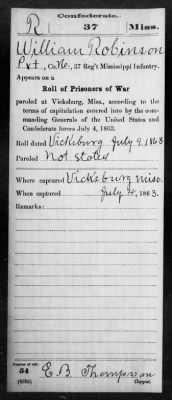 Confederate.
R 37 Miss.
William Robinson
Pvt, Co. K, 37 Reg't Mississippi Infantry.
Appears on a
Roll of Prisoners of War
paroled at Vicksburg, Miss., according to the
terms of capitulation entered into by the com-
manding Generals of the United States and
Confederate forces July 4, 1863.
Roll dated Vicksburg July 9 1863
Paroled Not stated
Where captured Vicksburg Miss.
When captured July 4, 1863.
Remarks:
Number of roll:
54
E B Thompson
Copyist.